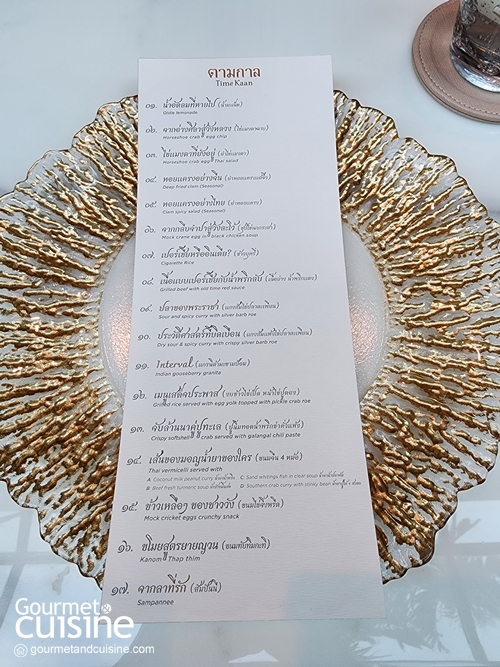 ตามกาล
Time Kaan
๐๑. น้ำอัดลมที่หายไป (น้ำมะเน็ด)
Oldie lemonade
๐๒. จากอ่างศิลาสู่วังหลวง
Horseshoe crab egg chip
๐๓. ไข่แมงดาที่ยังอยู่ (ยำไข่แมงดา)
Horseshoe crab egg Thai salad
๐๔. หอยแครงอย่างจีน
Deep fried clam (Seasonal)
๐๕. หอยแครงอย่างไทย (ยำหอยแครง)
Clam spicy salad (Seasonal)
๐๖.
Mock crane egg in black chicken soup
๐๗. เปอร์เซียหรืออินเดีย?
Cigarette Rice
๐๘. เนื้อแบบเปอร์เซียกับน้ำพริกกลับ
Grilled beef with old time red sauce
๐๙. ปลาของพระราชา
Sour and spicy curry with silver barb roe
๑๐. ประวัติศาสตร์ที่บิดเบือน
Dry sour & spicy curry with crispy silver barb roe
๑๑. Interval
Indian gooseberry granita
๑๒. เมนูเสด็จประพาส
Grilled rice served with egg yolk topped with pickle crab roe
๑๓. จับล้านนาคู่ปูทะเล
Crispy softshell crab served with galangal chili paste
๑๔. เส้นของมอญน้ำยาของใคร (ขนมจีน 4 หม้อ)
Thai vermicelli served with
A. Coconut milk peanut curry C. Sand whitings fish in clear soup
B. Beef fresh turmeric soup D. Southern crab curry with stinky bean
๑๕. ข้าวเหลือๆ ของชาววัง (ขนมไข่จิ้งหรีด)
Mock cricket eggs crunchy snack
๑๖. ขโมยสูตรยายญวน (ขนมทับทิมกะทิ)
Kanom Thap thim
๑๗. จากลาที่รัก (สัมปันนี)
Sampannee
Gourmet & CUISINE
gourmetandcuisine.com